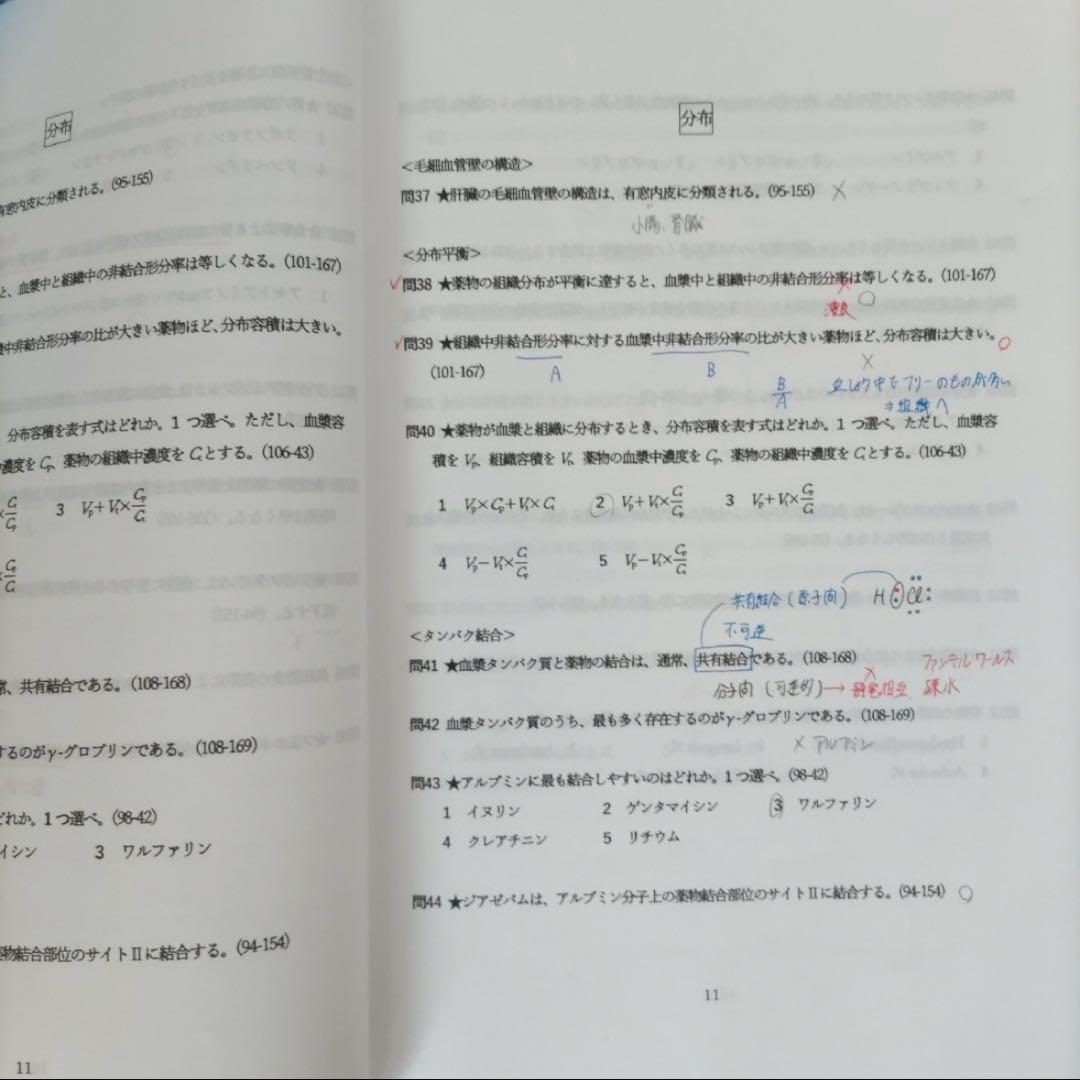 分布
有窓内皮に分類される。(95-155)
と、血漿中と組織中の非結合形分率は等しくなる。(101-167)
中非結合形分率の比が大きい薬物ほど、分布容積は大きい。
分布容積を表す式はどれか。1つ選べ。ただし、血漿容
濃度をCp、薬物の組織中濃度をCtとする。(106-43)
×Ct/Cp 3 Vp+Vt×Cp/Ct
×Cp/Ct
常、共有結合である。(108-168)
するのがγ-グロブリンである。(108-169)
どれか。1つ選べ。(98-42)
イシン 3 ワルファリン
物結合部位のサイトⅡに結合する。(94-154)
11
分布
<毛細血管壁の構造>
問37 ★肝臓の毛細血管壁の構造は、有窓内皮に分類される。(95-155) ×
小腸、腎臓
<分布平衡>
✓問38 ★薬物の組織分布が平衡に達すると、血漿中と組織中の非結合形分率は等しくなる。(101-167)
× ○
濃度
✓問39 ★組織中非結合形分率に対する血漿中非結合形分率の比が大きい薬物ほど、分布容積は大きい。○
(101-167) A B ×
B/A 血しょう中でフリーのものが多い
⇒組織へ
問40 ★薬物が血漿と組織に分布するとき、分布容積を表す式はどれか。1つ選べ。ただし、血漿容
積をVp、組織容積をVt、薬物の血漿中濃度をCp、薬物の組織中濃度をCtとする。(106-43)
1 Vp×Cp+Vt×Ct 2 Vp+Vt×Ct/Cp 3 Vp+Vt×Cp/Ct
4 Vp−Vt×Ct/Cp 5 Vp−Vt×Cp/Ct
共有結合(原子間) H:Cl:
不可逆
<タンパク結合>
問41 ★血漿タンパク質と薬物の結合は、通常、共有結合である。(108-168)
× ファンデルワールス
分子間(可逆的)→静電相互、疎水
問42 血漿タンパク質のうち、最も多く存在するのがγ-グロブリンである。(108-169)
× アルブミン
問43 ★アルブミンに最も結合しやすいのはどれか。1つ選べ。(98-42)
1 イヌリン 2 ゲンタマイシン 3 ワルファリン
4 クレアチニン 5 リチウム
問44 ★ジアゼパムは、アルブミン分子上の薬物結合部位のサイトⅡに結合する。(94-154) ○
11